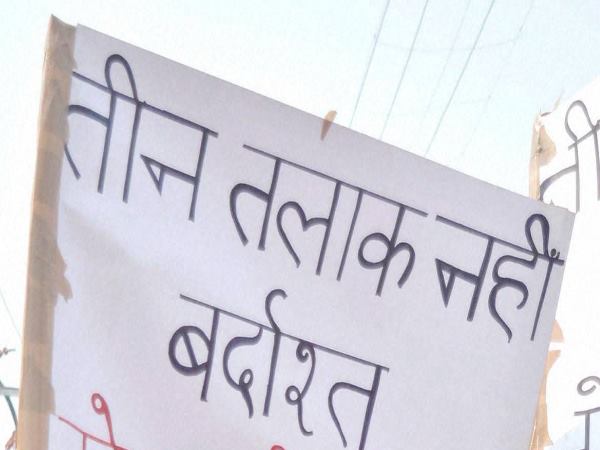 तीन तलाक नहीं
बर्दाश्त